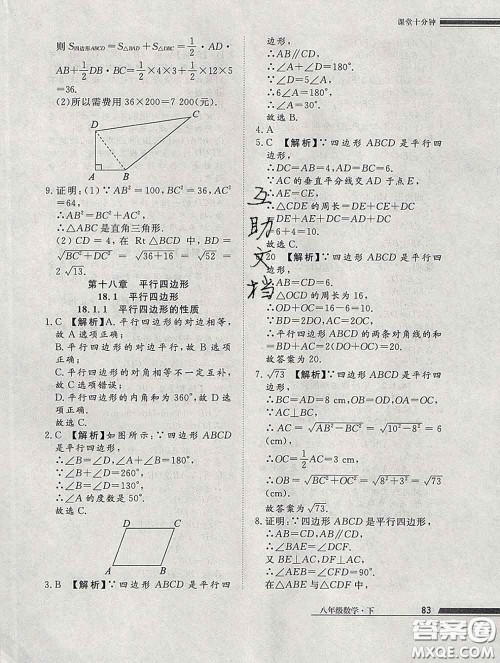 课堂十分钟
则 S四边形ABCD=S△BAD+S△DBC=1/2·AD·
AB+1/2DB·BC=1/2×4×3+1/2×12×5
=36.
(2)所以需费用 36×200=7 200(元).
D
C
A
B
9. 证明:(1)∵AB²=100,BC²=36,AC²
=64,
∴AB²=BC²+AC².
∴△ABC是直角三角形.
(2)CD=4,在 Rt△BCD 中,BD=
√(CD²+BC²)=√(4²+6²)=√(16+36)=√52=
2√13.
第十八章 平行四边形
18.1 平行四边形
18.1.1 平行四边形的性质
1. C 【解析】A.平行四边形的对边相等,故
A 选项正确;
B. 平行四边形的对边平行,故 B 选项正确;
C. 平行四边形的对角相等不一定互补,故
C 选项错误;
D. 平行四边形的内角和为360°,故 D 选项
正确. 故选 C.
2. C 【解析】如图所示:∵四边形 ABCD
是平行四边形,
∴∠B=∠D,∠A+∠B=180°.
∵∠B+∠D=260°,
∴∠B=∠D=130°,
∴∠A 的度数是 50°.
故选 C.
D
C
A
B
3. B 【解析】∵四边形 ABCD 是平行四
边形,
∴AB∥CD.
∴∠A+∠D=180°.
∵∠A=∠F=180°.
故选 A.
4. A
5. C 【解析】∵四边形 ABCD 是平行四
边形,
∴DC=AB=4,AD=BC=6.
∵AC 的垂直平分线交 AD 于点 E,
∴AE=CE,
∴△CDE 的周长=DE+CE+DC=DE
+AE+DC=AD+DC
=6+4=10.
故选 C.
20 【解析】∵四边形 ABCD 是平行四
边形,
∴AB=CD=6.
∵△OCD的周长为 16,
∴OD+OC=16-6=10.
∵BD=2DO,AC=2OC,
∴平行四边形 ABCD 的两条对角线的和
=BD+AC=2(DO+OC)=20.
故答案为 20.
7. √73 【解析】∵四边形 ABCD 是平行四
边形,
∴BC=AD=8 cm,OA=OC,
∵AC⊥BC,
∴AC=√(AB²-BC²)=√(10²-8²)=6
(cm),
∴OC=1/2AC=3 cm,
∴OB=√(BC²+OC²)=√(8²+3²)=√73
(cm).
故答案为√73.
8. 证明:∵四边形 ABCD 是平行四边形,
∴AB∥CD,AB=CD,
∴∠BAE=∠DCF.
在△ABE与△CDF中,
互助文档
八年级数学·下
83
答案圈
MXQE.COM